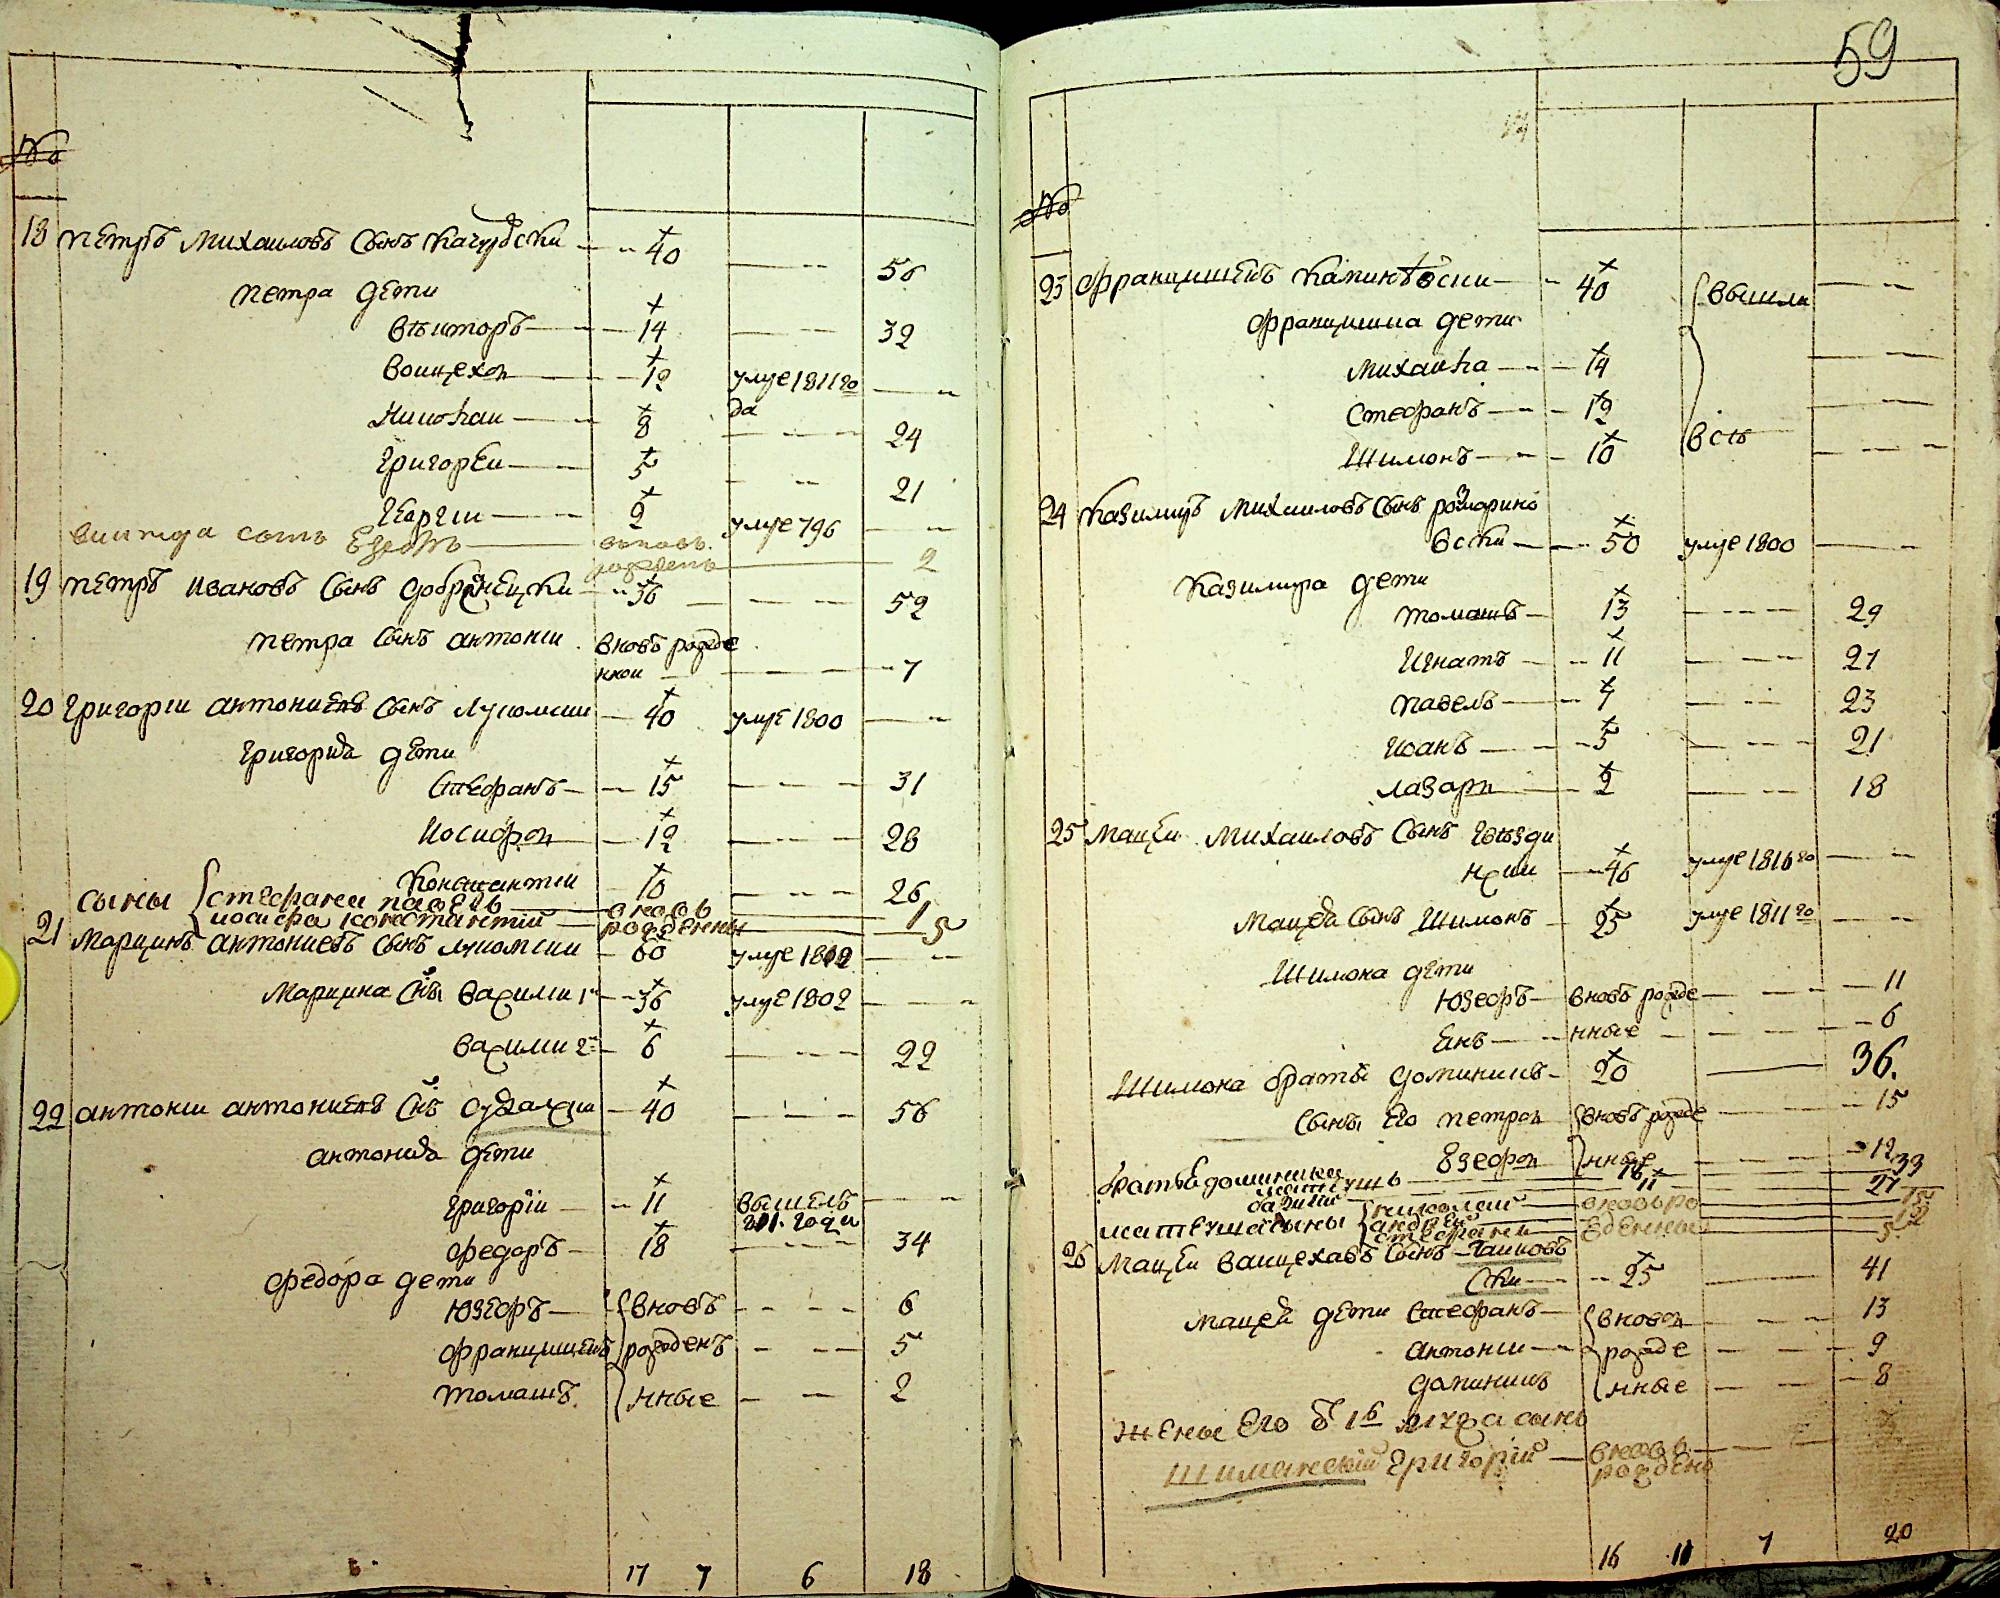 №
18 Петръ Михаиловъ Сынъ Качуровски 40 56
Петра дети
Викторъ 14 32
Воицехъ 12 умре 1811 го
да
Николаи 8 24
Григореи 5 21
Георгеи 2 умре 796
Виктора сынъ Езефъ вновь
рожденъ 2
19 Петръ Ивановъ Сынъ Добренецки 36 52
Петра Сынъ Антони вновъ рожде
нной 7
20 Григори Антониевъ Сынъ Лукомски 40 умре 1800
Григория дети
Стефанъ 15 31
Иосифъ 12 28
Константи 10 26
Сыны стефана павелъ вновь 1
иосифа константий рождены 5
21 Марцинъ Антониевъ Сынъ Лукомски 60 умре 1802
Марцина Сны Вахими 1й 36 умре 1802
Вахими 2й 6 22
22 Антони Антониевъ Снъ 40 56
Антония дети
Григори 11 вышелъ
811. года
Федоръ 18 34
Федора дети
Юзефъ вновъ 6
Францишекъ рожденъ 5
Томашъ нные 2
17 7 6 18
59
№
23 Францишекъ Каминъски 40 вышли
Францишка дети
Михаила 14
Стефанъ 12
Шимонъ 10 всѣ
24 Казимиръ Михаиловъ Сынъ розмарино
вски 50 умре 1800
Казимира дети
Томашъ 13 29
Игнатъ 11 27
Павелъ 7 23
Иоанъ 5 21
Лазарь 2 18
25 Мацеи Михаиловъ Сынъ Гвезди
46 умре 1816 го
Мацея Сынъ Шимонъ 25 умре 1811 го
Шимона дети
Юзефъ вновъ рожде 11
Янъ нные 6
Шимона братъ Доминикъ 20 36.
Сыны Его Петръ вновъ рожде 15
Езефъ нные 12
братья доминика
матеушъ 16 33
11 27
матеуша сыны николай вновь ро
андрей
стефанъ жденныи 5
26 Мацеи Воицеховъ Сынъ
ски 25 41
Мацея дети Стефанъ вновъ 13
Антони рожде 9
Доминикъ нные 8
жены Его б 1го мужа сынъ
Шиманский Григорий вновь
рожденъ
16 11 7 20